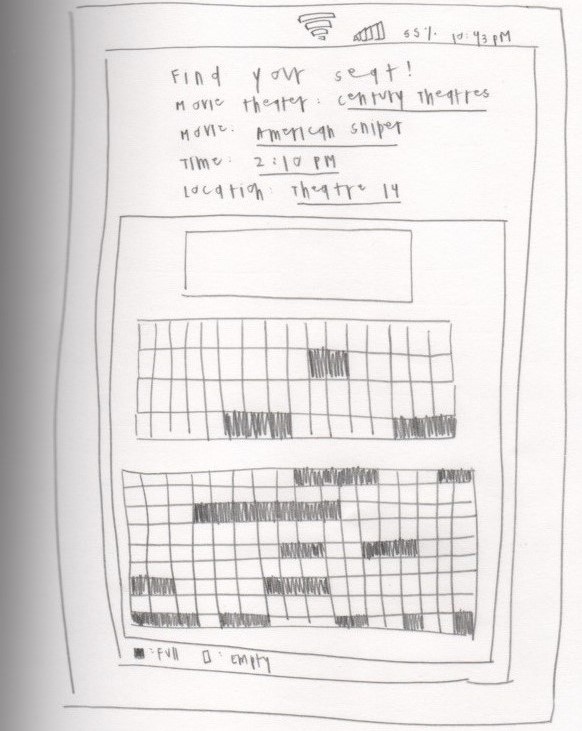 55% 10:43 PM
Find your seat!
Movie theater: Century Theatres
Movie: American Sniper
Time: 2:10 PM
Location: Theatre 14
: Full : Empty